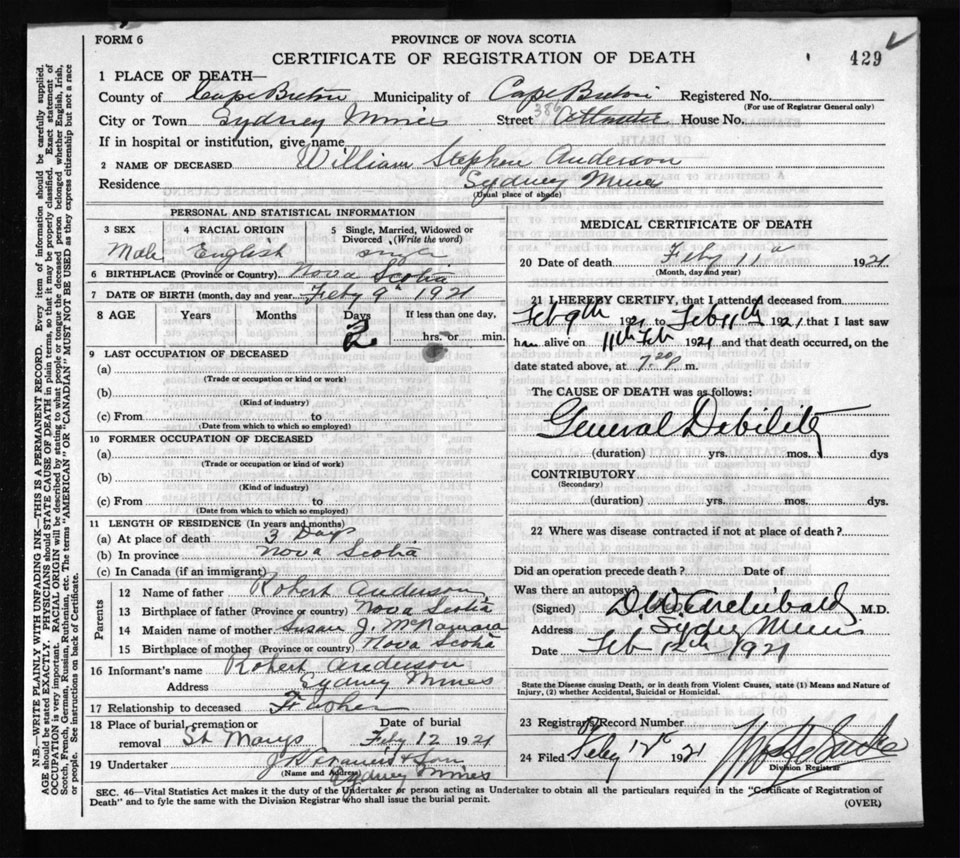 FORM 6
PROVINCE OF NOVA SCOTIA
CERTIFICATE OF REGISTRATION OF DEATH
429
1 PLACE OF DEATH—
County of Cape Breton Municipality of Cape Breton Registered No.
(For use of Registrar General only)
City or Town Sydney Mines Street 386 House No.
If in hospital or institution, give name
2 NAME OF DECEASED William Stephen Anderson
Residence Sydney Mines
(Usual place of abode)
PERSONAL AND STATISTICAL INFORMATION
3 SEX 4 RACIAL ORIGIN 5 Single, Married, Widowed or Divorced (Write the word)
Male English
6 BIRTHPLACE (Province or Country) Nova Scotia
7 DATE OF BIRTH (month, day and year) Feby 9 1921
8 AGE Years Months Days If less than one day,
2 hrs. or min.
9 LAST OCCUPATION OF DECEASED
(a)
(Trade or occupation or kind or work)
(b)
(Kind of industry)
(c) From to
(Date from which to which so employed)
10 FORMER OCCUPATION OF DECEASED
(a)
(Trade or occupation or kind of work)
(b)
(Kind of industry)
(c) From to
(Date from which to which so employed)
11 LENGTH OF RESIDENCE (In years and months)
(a) At place of death 3 Days
(b) In province Nova Scotia
(c) In Canada (if an immigrant)
Parents
12 Name of father Robert Anderson
13 Birthplace of father (Province or country) Nova Scotia
14 Maiden name of mother Susan J. McNamara
15 Birthplace of mother (Province or country) Nova Scotia
16 Informant's name Robert Anderson
Address Sydney Mines
17 Relationship to deceased Father
18 Place of burial, cremation or Date of burial
removal St Marys Feby 12 1921
19 Undertaker
(Name and Address) Sydney Mines
MEDICAL CERTIFICATE OF DEATH
20 Date of death Feby 11 1921
(Month, day and year)
21 I HEREBY CERTIFY, that I attended deceased from
Feb 9th 1921 to Feb 11th 1921 that I last saw
h alive on 11th Feb 1921 and that death occurred, on the
date stated above, at 7.20 p m.
The CAUSE OF DEATH was as follows:
General Debility
(duration) yrs. mos. dys
CONTRIBUTORY
(Secondary)
(duration) yrs. mos. dys.
22 Where was disease contracted if not at place of death?
Did an operation precede death? Date of
Was there an autopsy
(Signed) Archibald M.D.
Address Sydney Mines
Date Feb 12th 1921
State the Disease causing Death, or in death from Violent Causes, state (1) Means and Nature of
Injury, (2) whether Accidental, Suicidal or Homicidal.
23 Registrar's Record Number
24 Filed Feby 12 1921
Division Registrar
SEC. 46—Vital Statistics Act makes it the duty of the Undertaker or person acting as Undertaker to obtain all the particulars required in the "Certificate of Registration of
Death" and to fyle the same with the Division Registrar who shall issue the burial permit.
(OVER)
N.B.—WRITE PLAINLY WITH UNFADING INK—THIS IS A PERMANENT RECORD. Every item of information should be carefully supplied.
AGE should be stated EXACTLY. PHYSICIANS should STATE CAUSE OF DEATH in plain terms, so that it may be properly classified. Exact statement of
OCCUPATION is very important. RACIAL ORIGIN will be described by stating to what people or tongue the deceased person belonged whether English, Irish,
Scotch, French, German, Russian, Ruthenian, etc. The terms "AMERICAN" OR "CANADIAN" MUST NOT BE USED as they express citizenship but not a race
or people. See instructions on back of Certificate.